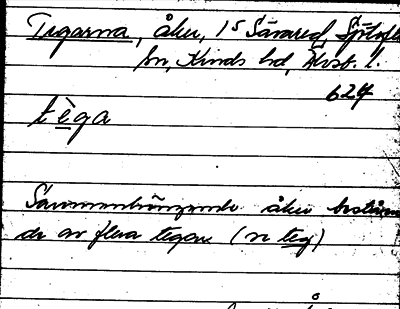 Tegarna, åker, 1⁵ Sävared, Sjötofta
sn, Kinds hd, Älvsb. l.
624
tèga
Sammanhängande åker bestående
de av flera tegar (se teg)